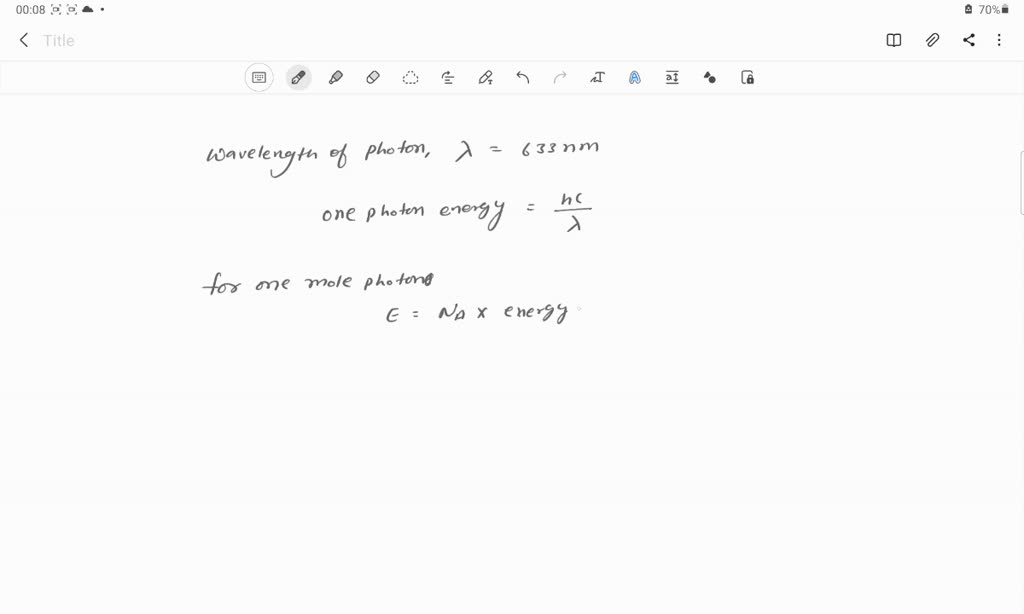 00:08 70%
Title
wavelength of photon, λ = 633nm
one photon energy = hc/λ
for one mole photons
E = NA x energy